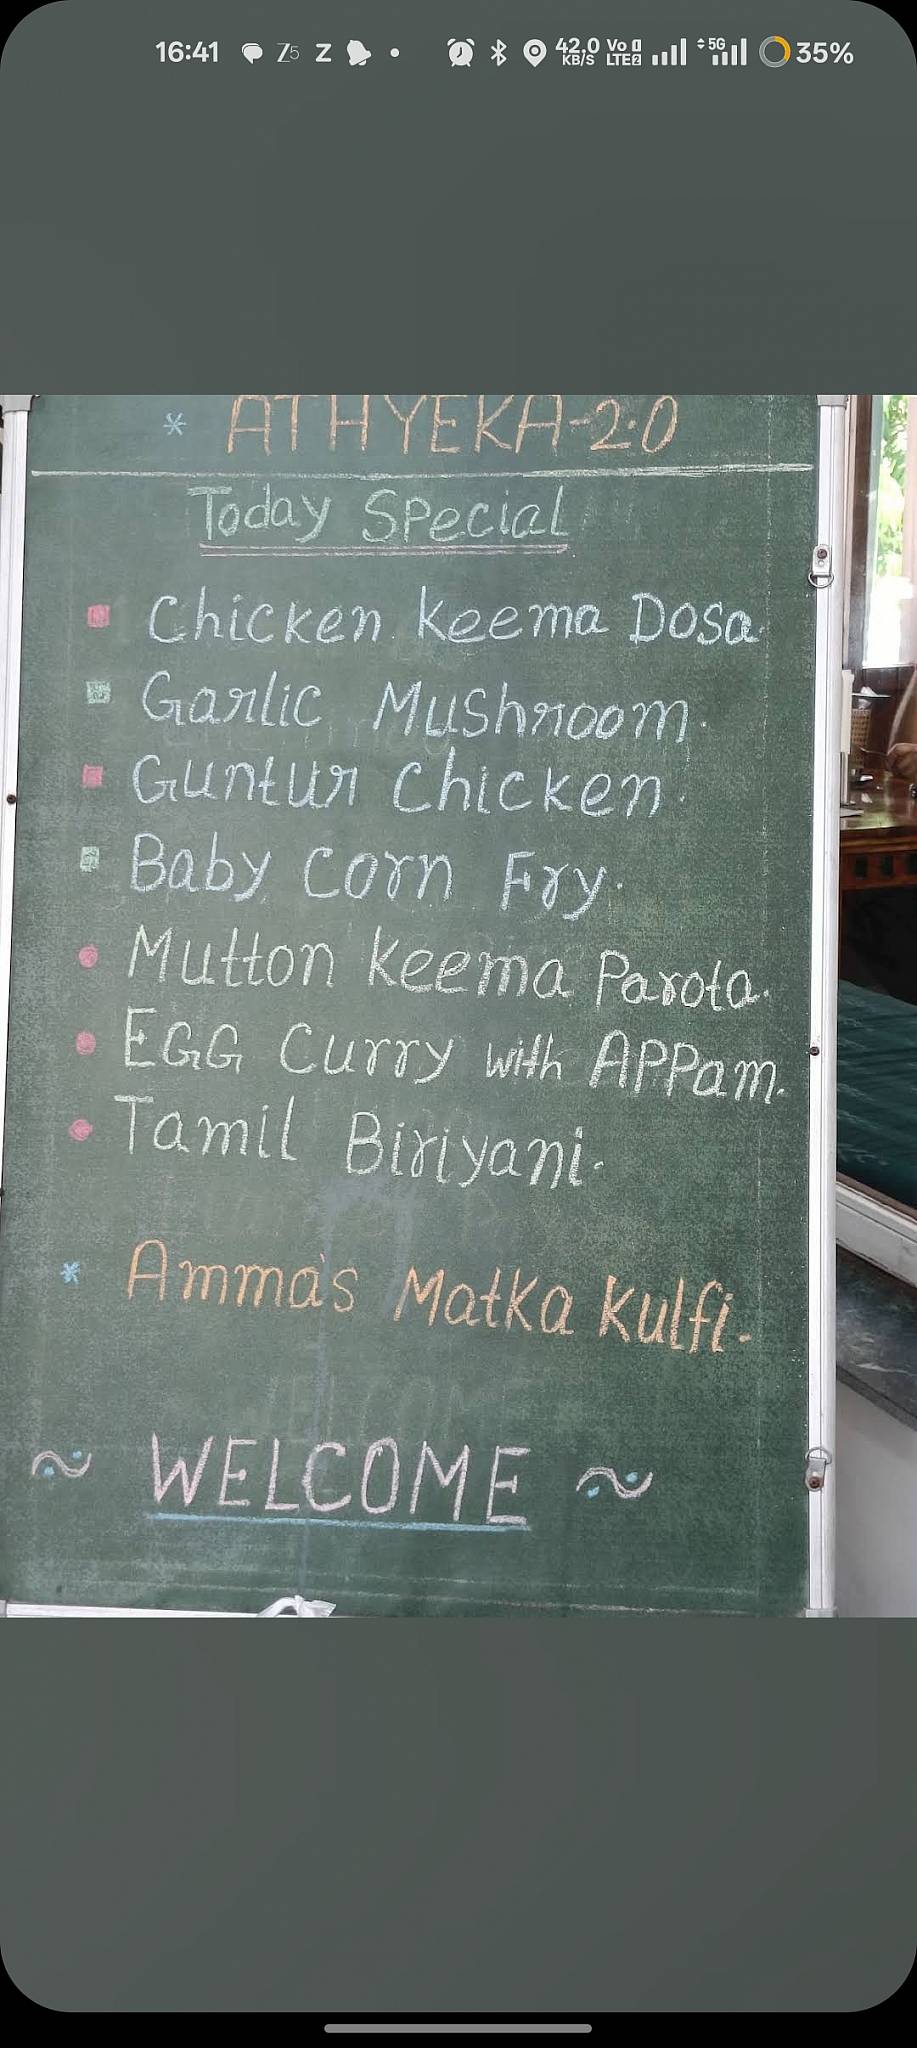 16:41 Z5 Z 42.0 KB/S Vo LTE2 5G 35%
* ATHYEKA-2.0
Today Special
Chicken Keema Dosa
Garlic Mushroom.
Guntur Chicken.
Baby Corn Fry.
Mutton Keema Parota.
EGG Curry with APPam.
Tamil Biriyani.
* Amma's Matka Kulfi.
~ WELCOME ~